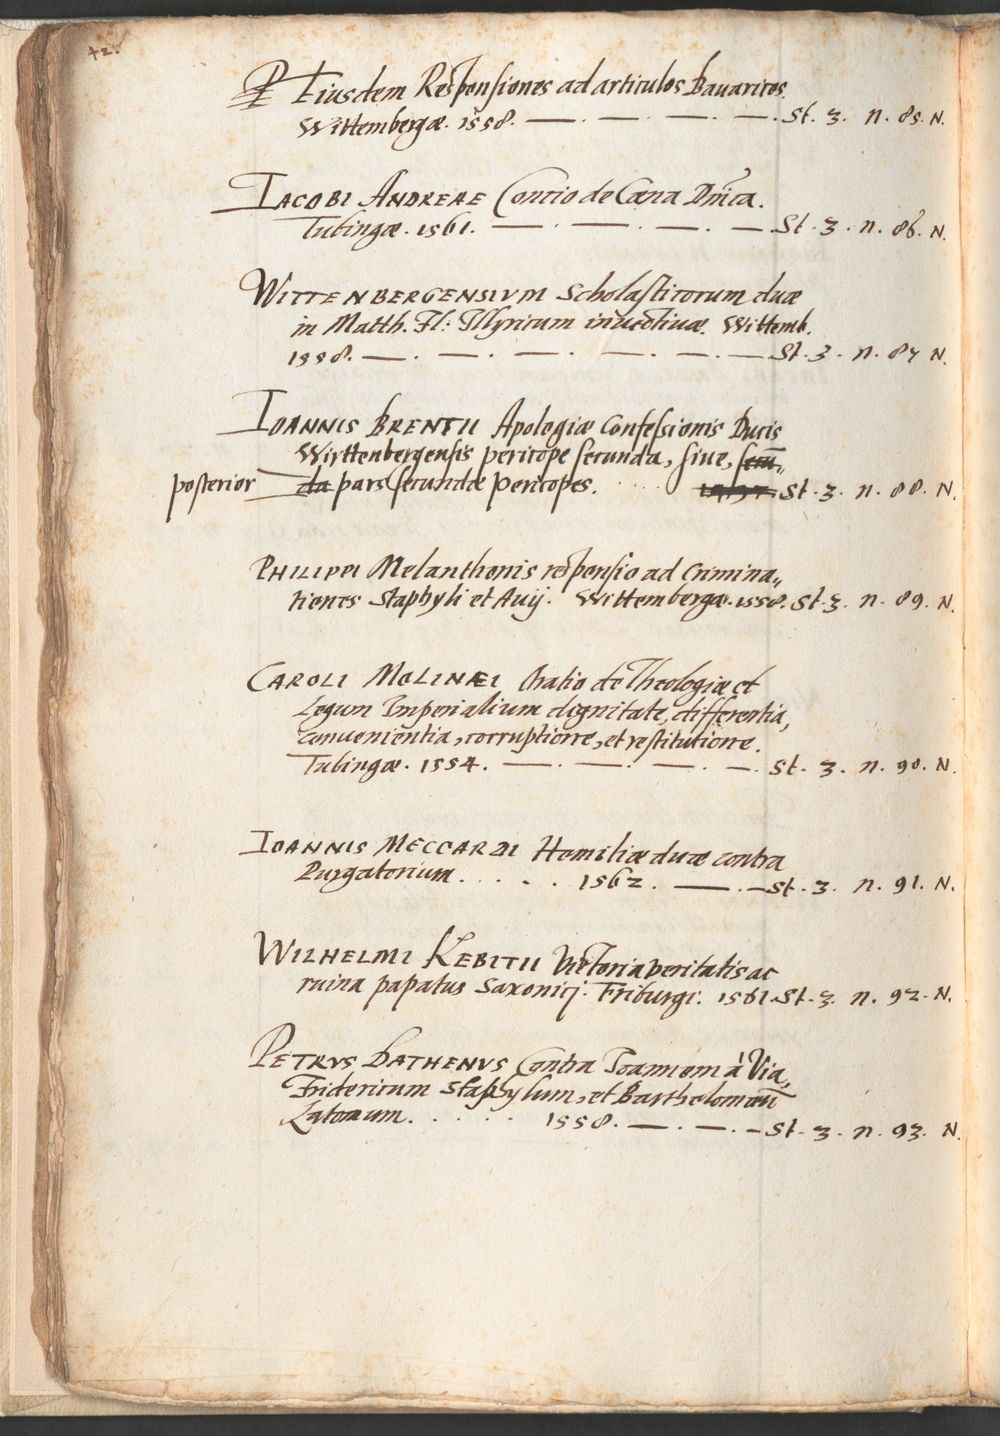 42.
Eiusdem Responsiones ad articulos Bauaricos
Wittembergæ. 1558. — . — . — . — . St. 3. n. 85. N.
IACOBI ANDREAE Concio de Cæna Dnica.
Tubingæ. 1561. — . — . — . — St. 3. n. 86. N.
WITTENBERGENSIVM Scholasticorum duæ
in Matth. Fl: Illyricum inuectiuæ. Wittemb.
1558. — . — . — . — . — . — St. 3. n. 87 N.
IOANNIS BRENTII Apologiæ Confessionis Ducis
Wirttenbergensis pericope secunda, siue, secu̅„
posterior da pars secundæ Pericopes. . . . . St. 3. n. 88. N.
PHILIPPI Melanthonis responsio ad Crimina„
tiones Staphyli et Auij. Wittembergæ. 1558. St. 3. n. 89. N.
CAROLI MOLINÆI Oratio de Theologiæ et
Legum Imperialium dignitate, differentia,
conuenientia, corruptione, et restitutione.
Tubingæ. 1554. — . — . — . — . St. 3. n. 90. N.
IOANNIS MECCARDI Homiliæ duæ contra
Purgatorium. . . . . 1562. — . — St. 3. n. 91. N.
WILHELMI KEBITII Victoria veritatis ac
ruina papatus Saxonicj. Friburgi. 1561. St. 3. n. 92. N.
PETRVS DATHENVS Contra Ioannem à Via,
Fridericum Staphylum, et Bartholomæu̅
Latomum. . . . . . 1558. — . — . — St. 3. n. 93. N.